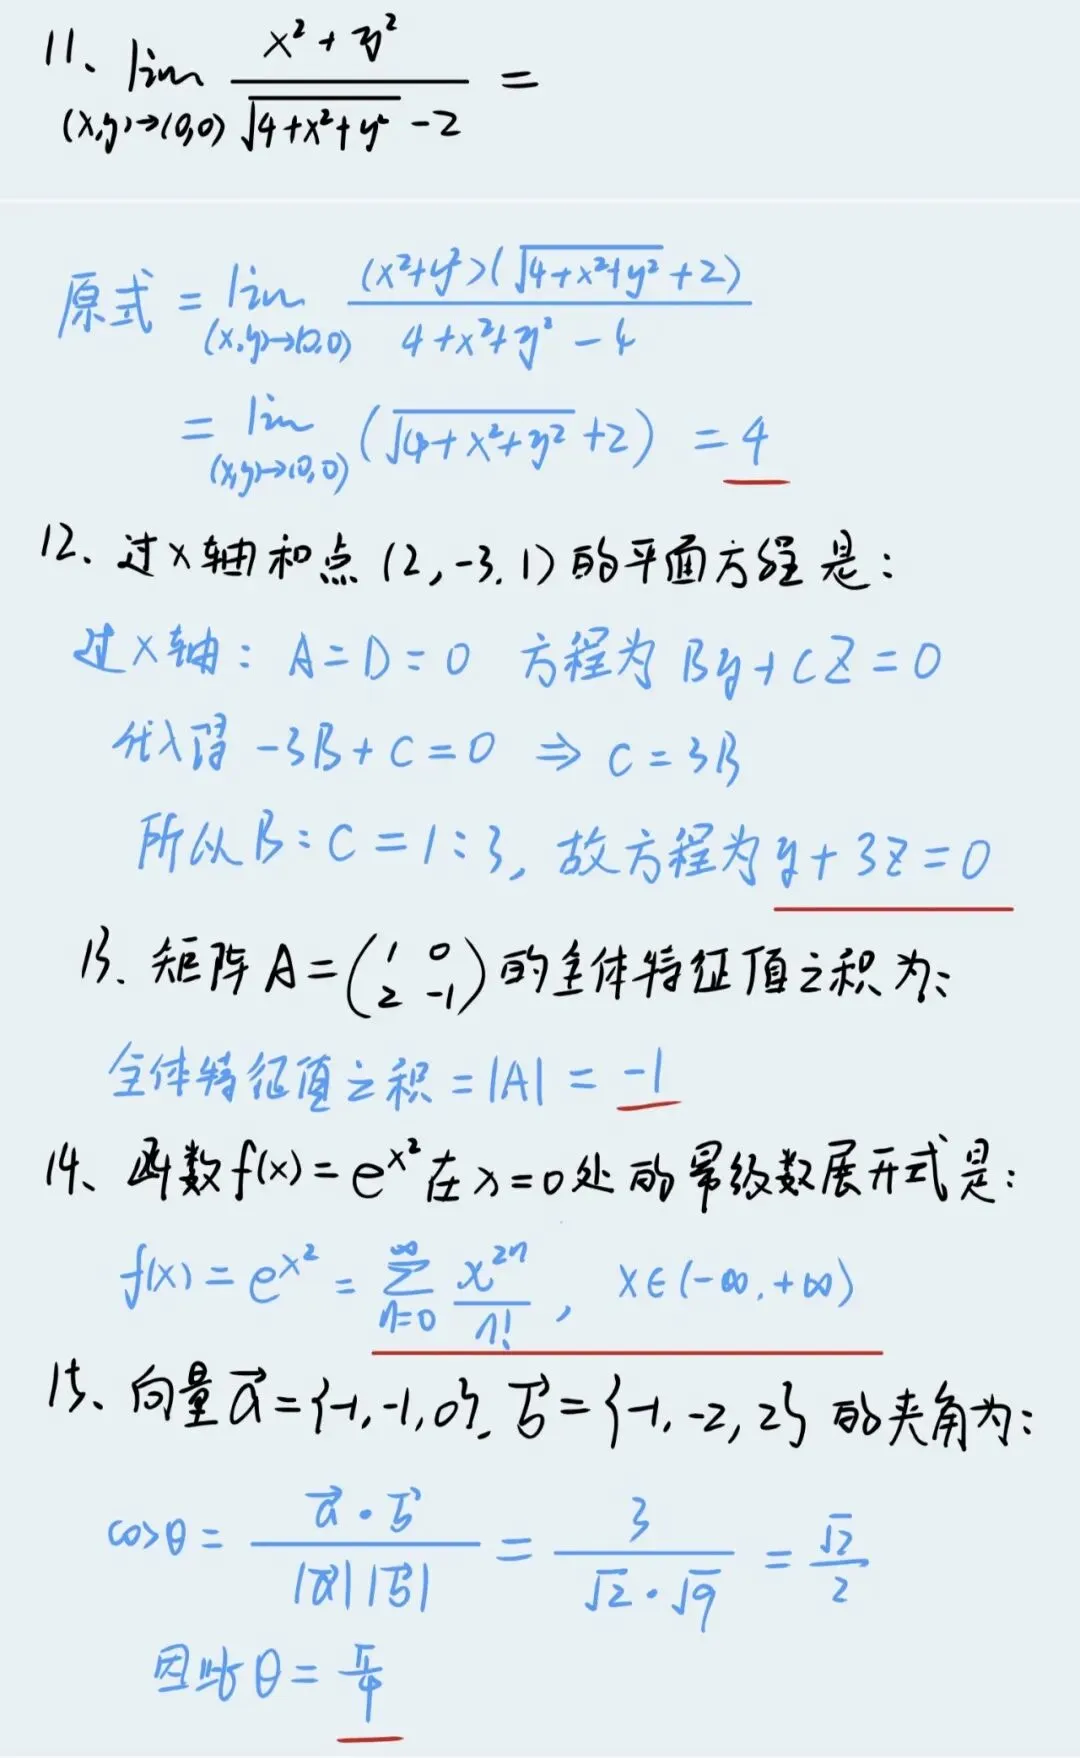 11、lim (x,y)→(0,0) (x²+y²)/(√(4+x²+y²) -2) =
原式 = lim (x,y)→(0,0) (x²+y²)(√(4+x²+y²) +2)/(4+x²+y²-4)
= lim (x,y)→(0,0) (√(4+x²+y²) +2) = 4
12、过x轴和点(2,-3,1)的平面方程是:
过x轴: A=D=0 方程为 By+CZ=0
代入得 -3B+C=0 ⇒ C=3B
所以B:C=1:3, 故方程为y+3z=0
13、矩阵A=(1 0; 2 -1)的全体特征值之积为:
全体特征值之积=|A|=-1
14、函数f(x)=e^{x²}在x=0处的幂级数展开式是:
f(x)=e^{x²}=∑_{n=0}^{∞} x^{2n}/n!, x∈(-∞,+∞)
15、向量a⃗={-1,-1,0}、b⃗={-1,-2,2}的夹角为:
cosθ= (a⃗·b⃗)/(|a⃗||b⃗|) = 3/(√2·√9) = √2/2
因此θ=π/4